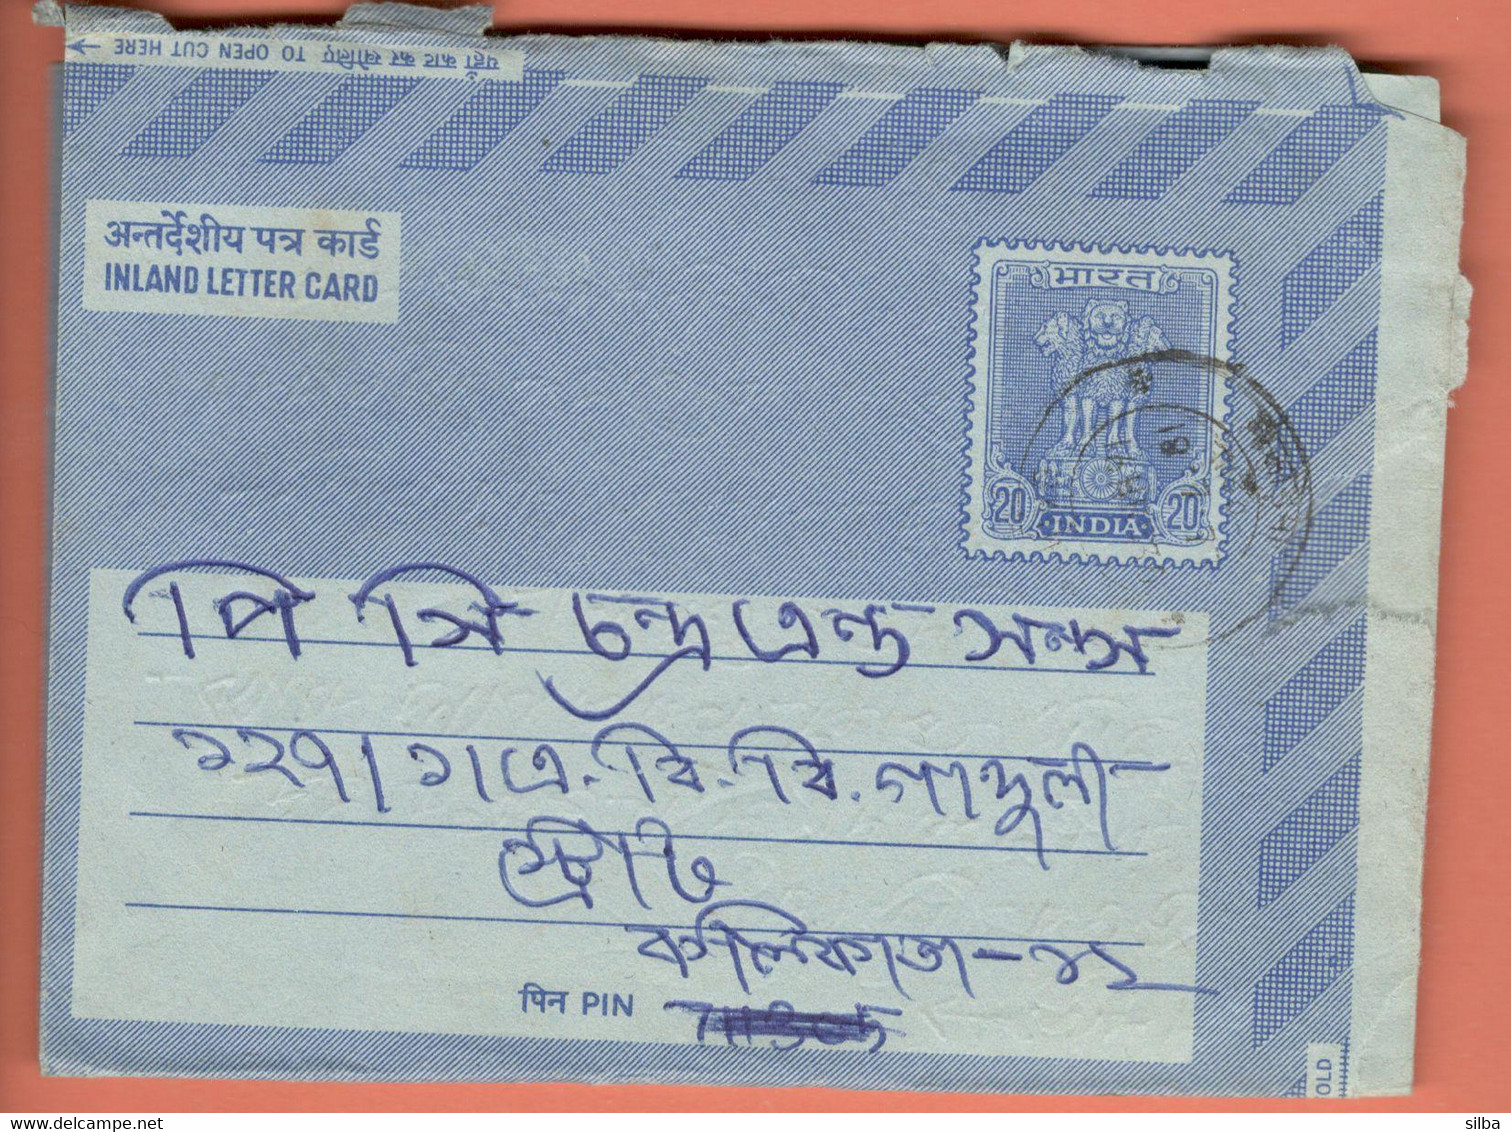 यहाँ काट कर खोलिए TO OPEN CUT HERE
अन्तर्देशीय पत्र कार्ड
INLAND LETTER CARD
भारत
20 INDIA 20
পি সি চন্দ্র এন্ড সন্স
১২৭/১/এ.বি.বি.গাঙ্গুলী
স্ট্রীট
কলিকাতা-১২
पिन PIN
OLD
delcampe.net
silba